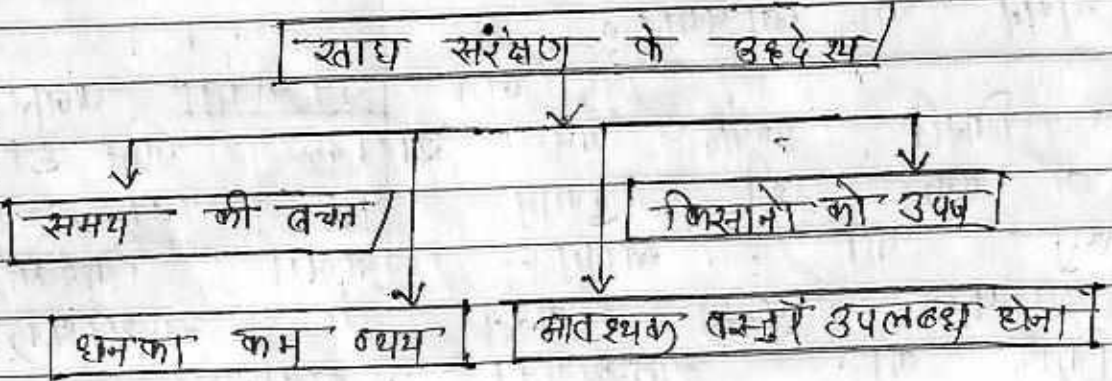 खाद्य सरंक्षण के उद्देश्य
समय की बचत
किसानो को उपज
धन का कम व्यय
आवश्यक वस्तुएँ उपलब्ध होना